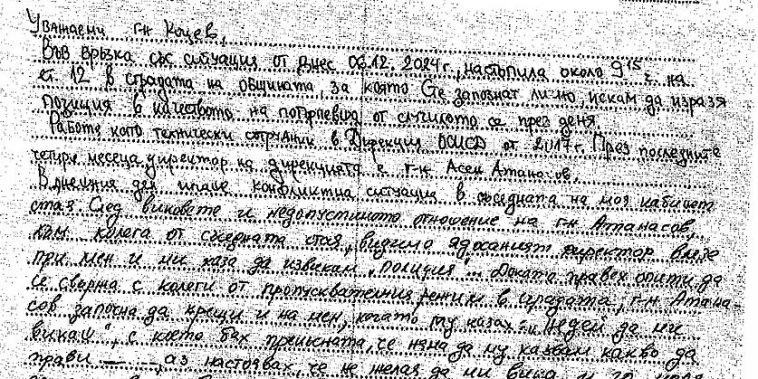 Уважаеми г-н Коцев,
Във връзка със ситуация от днес 06.12.2024г., настъпила около 9¹⁵ ч. на
ет. 12 в сградата на общината, за която сте запознат лично, искам да изразя
позиция в качеството на потърпевща от случилото се през деня.
Работя като технически сътрудник в Дирекция от 2017г. През последните
четири месеца директор на дирекцията е г-н Асен Атанасов.
В днешния ден имаше конфликтна ситуация в съседната на моя кабинет
стая. След виковете и недопустимото отношение на г-н Атанасов,
към колега от съседната стая, видимо ядосаният директор влезе
при мен и ми каза да извикам „полиция“... Докато правех опити да
се свържа с колеги от пропускателния режим в сградата, г-н Атана-
сов започна да крещи и на мен, когато му казах: „Недей да ми
викаш“, с което бях прекъсната, че няма да му казвам какво да
прави аз настоявах, че не желая да ми вика и